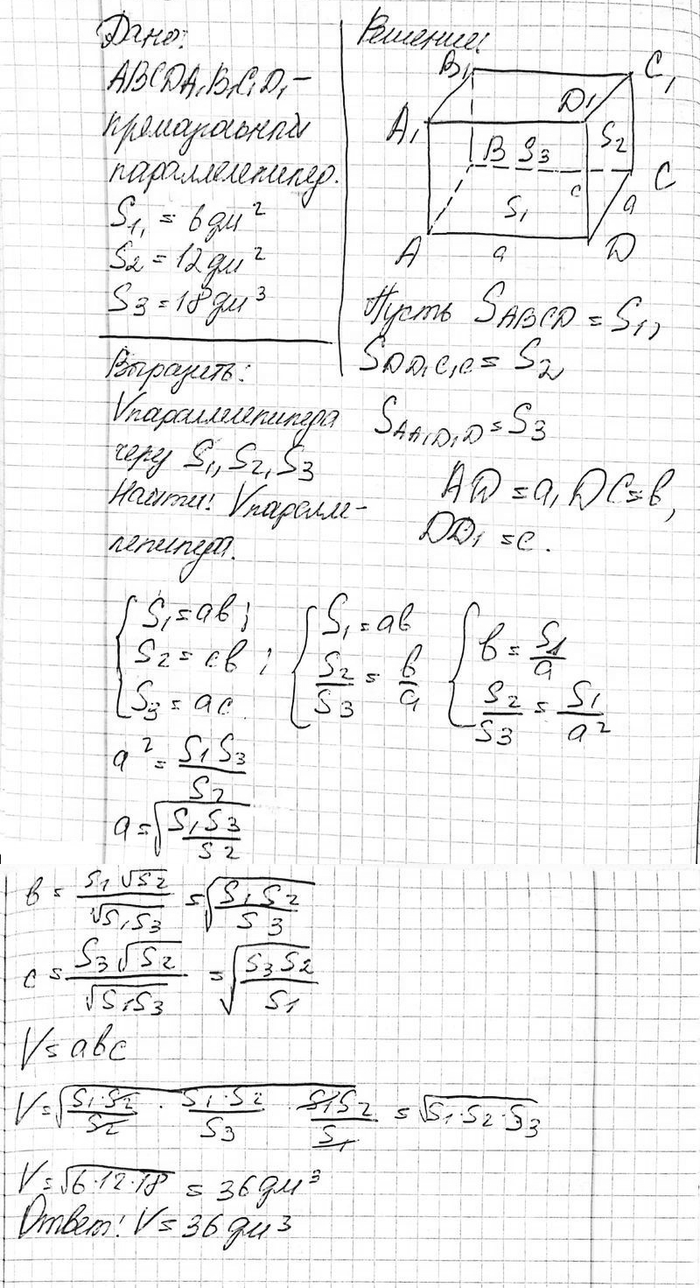 Дано:
ABCDA₁B₁C₁D₁ –
прямоугольный
параллелепипед.
S₁, = 6 дм²
S₂ = 12 дм²
S₃ = 18 дм³
Выразить:
Vпараллелепипеда
через S₁, S₂, S₃
Найти: Vпаралле-
лепипеда.
Решение:
B₁ C₁
A₁ D₁
B S₃ S₂
C
S₁ c a
A a D
Пусть S ABCD = S₁,
S DD₁C₁C = S₂
S AA₁D₁D = S₃
AD = a, DC = в,
DD₁ = c.
{ S₁ = aв; { S₁ = aв { в = S₁/a
S₂ = cв ; S₂/S₃ = в/a S₂/S₃ = S₁/a²
S₃ = ac.
a² = S₁S₃/S₂
a = √(S₁S₃/S₂)
в = S₁√S₂/√S₁S₃ = √(S₁S₂/S₃)
c = S₃√S₂/√S₁S₃ = √(S₃S₂/S₁)
V = aвc
V = √(S₁·S₂/S₂ · S₁·S₂/S₃ · S₁S₂/S₁) = √S₁·S₂·S₃
V = √6·12·18 = 36 дм³
Ответ: V = 36 дм³